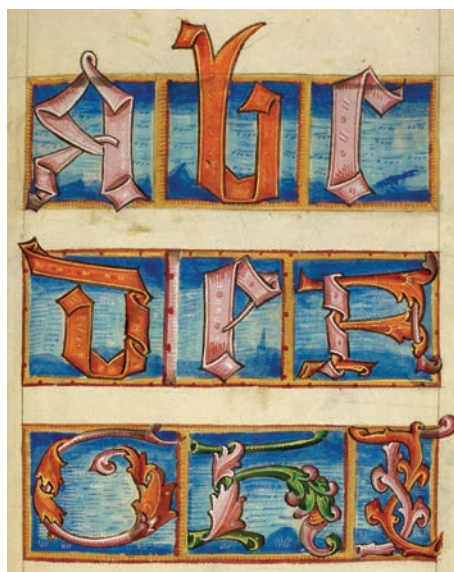 A b c
d e F
G h I